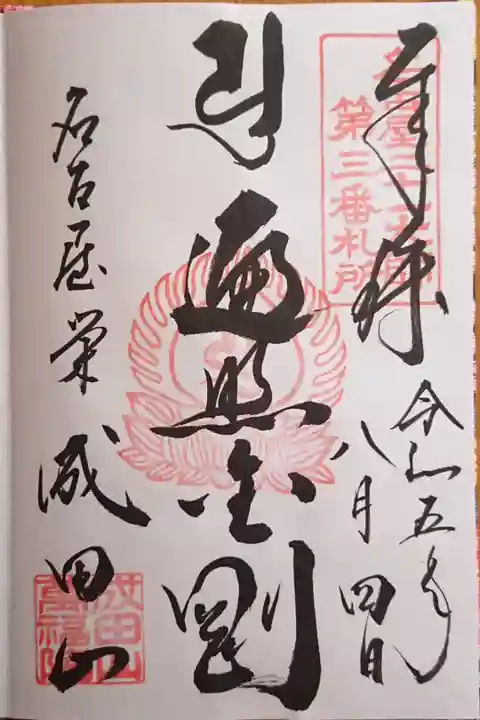 奉拝
令和五年
八月四日
名古屋二十一大師
第三番札所
遍照金剛
名古屋栄 成田山
成田山
萬福院